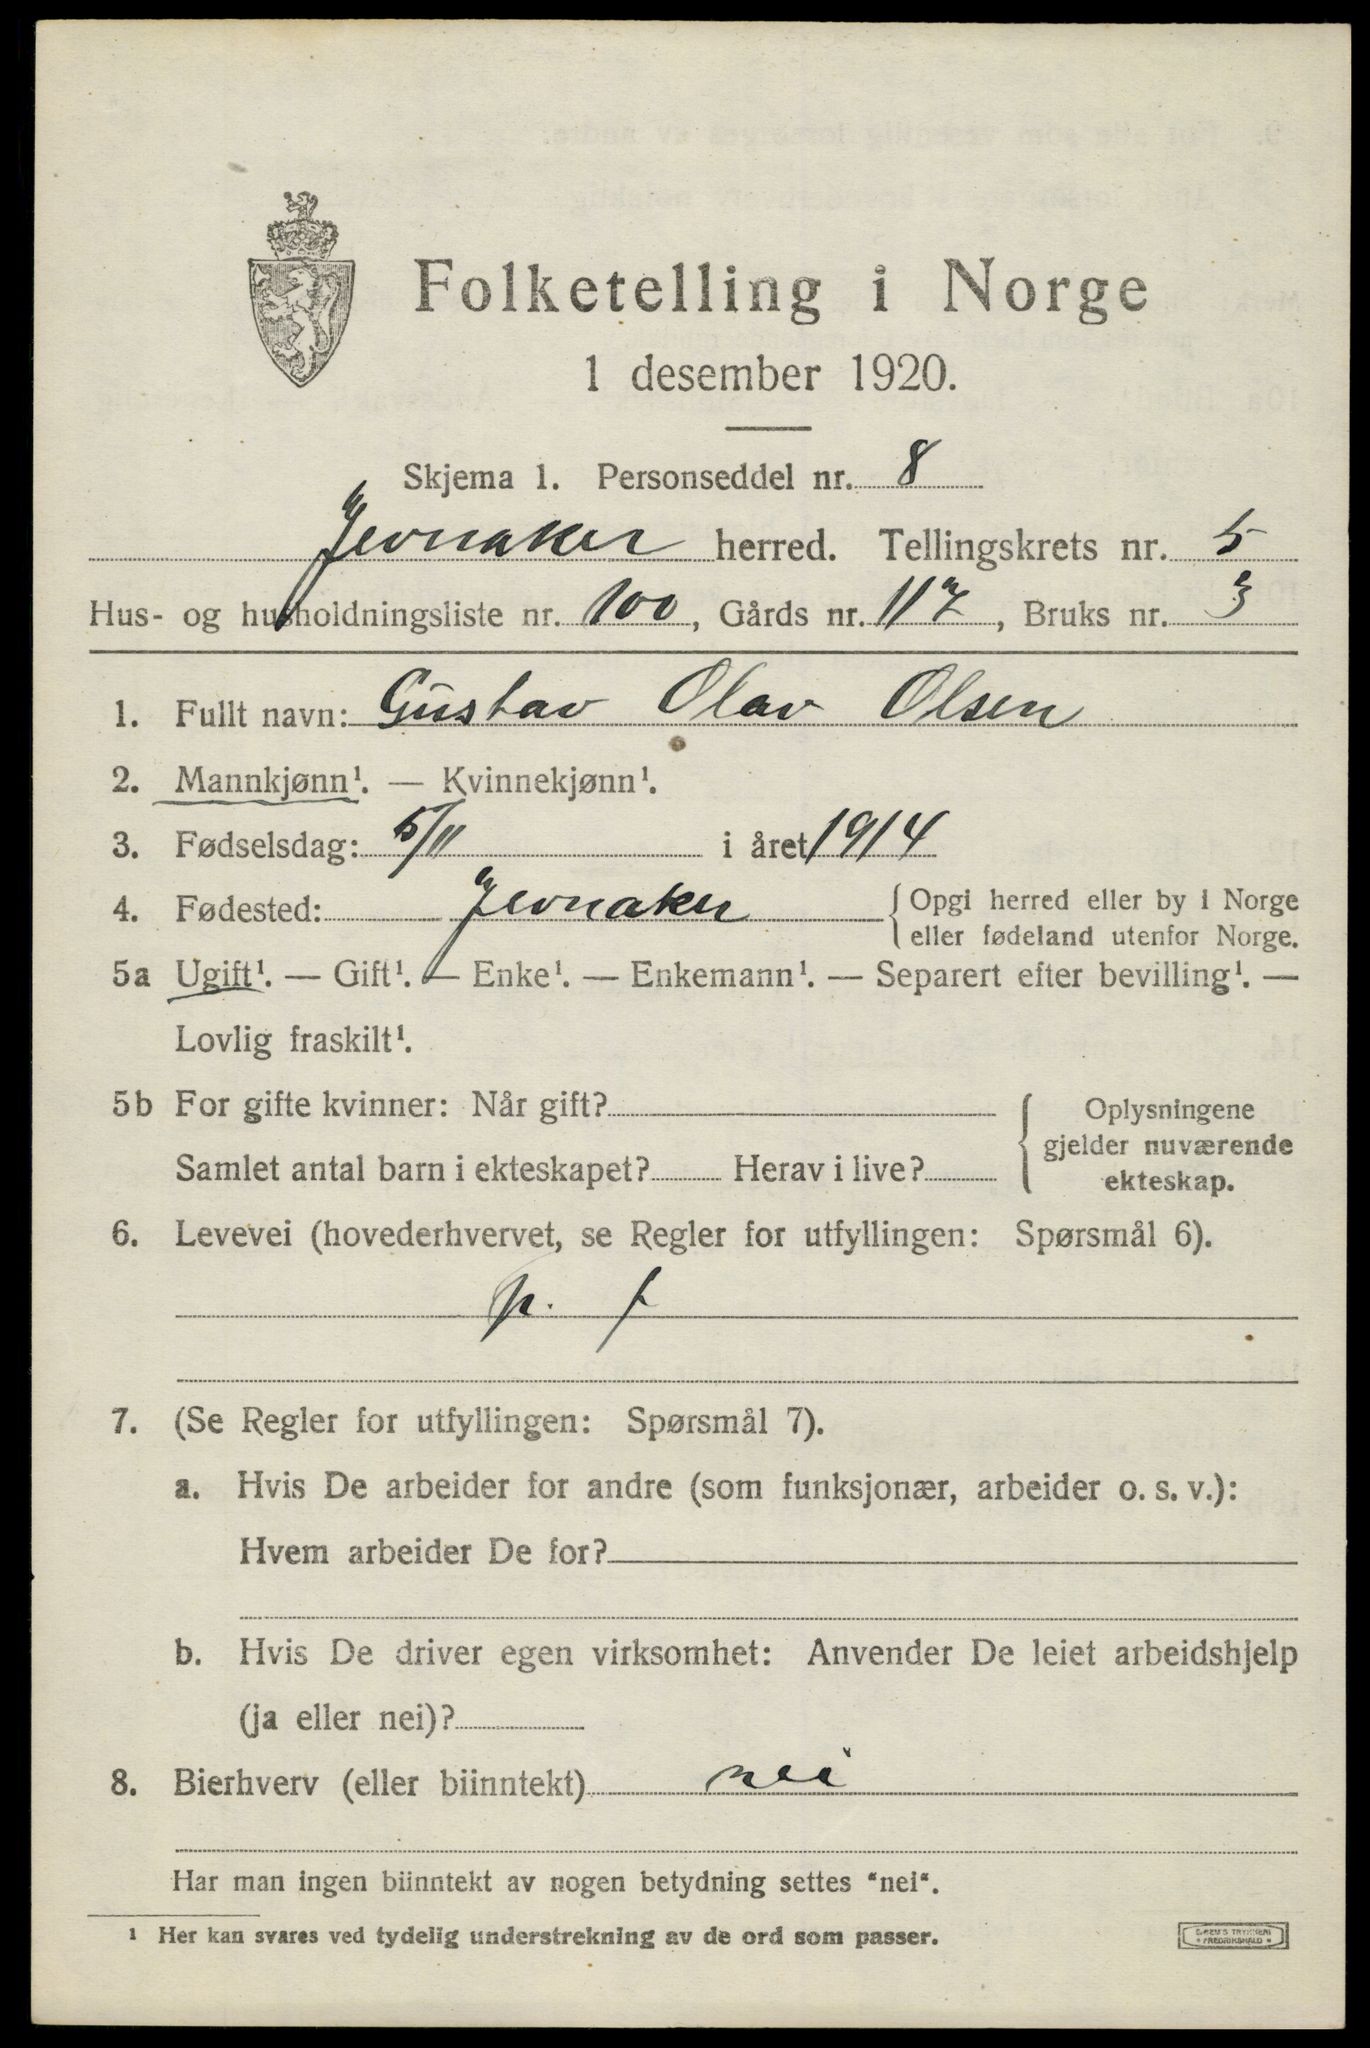 Folketelling i Norge
1 desember 1920.
Skjema 1. Personseddel nr. 8
Jevnaker herred. Tellingskrets nr. 5
Hus- og husholdningsliste nr. 100, Gårds nr. 117, Bruks nr. 3
1. Fullt navn: Gustav Olav Olsen
2. Mannkjønn¹. — Kvinnekjønn¹.
3. Fødselsdag: 5/11 i året 1914
4. Fødested: Jevnaker { Opgi herred eller by i Norge
eller fødeland utenfor Norge.
5a Ugift¹. — Gift¹. — Enke¹. — Enkemann¹. — Separert efter bevilling¹. —
Lovlig fraskilt¹.
5b For gifte kvinner: Når gift?
Samlet antal barn i ekteskapet? Herav i live?
Oplysningene
gjelder nuværende
ekteskap.
6. Levevei (hovederhvervet, se Regler for utfyllingen: Spørsmål 6).
p. f
7. (Se Regler for utfyllingen: Spørsmål 7).
a. Hvis De arbeider for andre (som funksjonær, arbeider o. s. v.):
Hvem arbeider De for?
b. Hvis De driver egen virksomhet: Anvender De leiet arbeidshjelp
(ja eller nei)?
8. Bierhverv (eller biinntekt) nei
Har man ingen biinntekt av nogen betydning settes "nei".
¹ Her kan svares ved tydelig understrekning av de ord som passer.